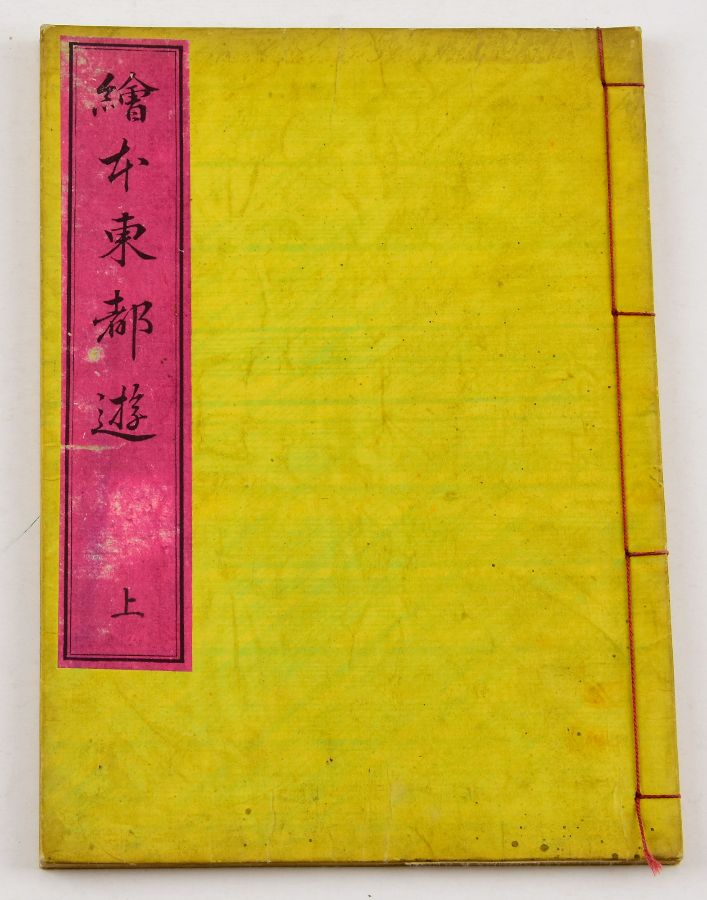 繪本東都遊
上